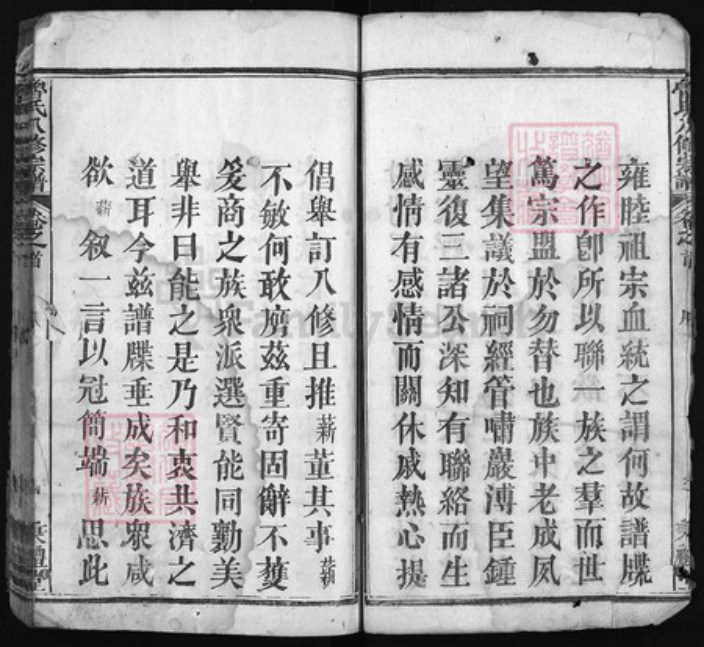 雍睦祖宗血統之謂何故譜牒
之作卽所以聯一族之羣而世
篤宗盟於勿替也族中老成夙
望集議於祠經管嘯巖溥臣鍾
靈復三諸公深知有聯絡而生
感情有感情而關休戚熱心提
倡舉訂八修且推薪董其事薪
不敏何敢膺茲重寄固辭不獲
爰商之族衆派選賢能同勷美
舉非曰能之是乃和衷共濟之
道耳今茲譜牒垂成矣族衆咸
欲薪叙一言以冠簡端薪思此
氏八修宗譜 卷之首
FamilySearch